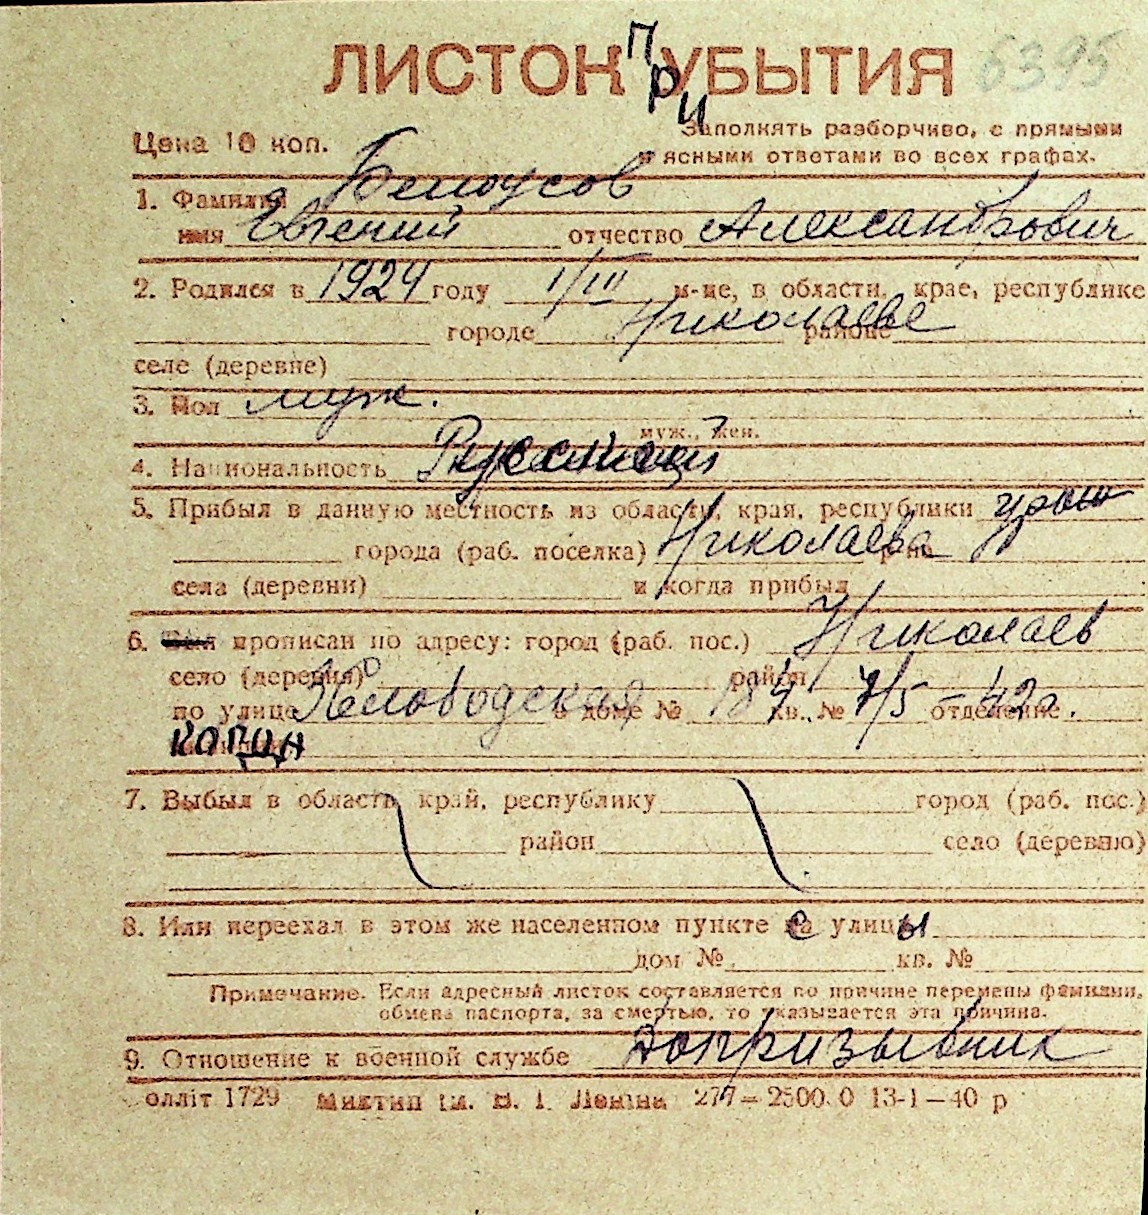 ЛИСТОК ПРИ УБЫТИЯ 6395
Цена 10 коп.
Заполнять разборчиво, с прямыми
и ясными ответами во всех графах.
1. Фамилия Белоусов
имя Евгений отчество Александрович
2. Родился в 1924 году 1/III м-це, в области, крае, республике
городе Николаеве районе
селе (деревне)
3. Пол муж.
муж., жен.
4. Национальность Русский
5. Прибыл в данную местность из области, края, республики
города (раб. поселка) Николаева р-на
села (деревни) и когда прибыл
6. Был прописан по адресу: город (раб. пос.) Николаев
село (деревня) район
по улице в доме № 184 кв. № 7/5 – 42г. отделение
7. Выбыл в область, край, республику город (раб. пос.)
район село (деревню)
8. Или переехал в этом же населенном пункте с улицы
дом № кв. №
Примечание. Если адресный листок составляется по причине перемены фамилии,
обмена паспорта, за смертью, то указывается эта причина.
9. Отношение к военной службе Допризывник
олліт 1729 Миктип ім. В. І. Леніна 277 – 2500.0 13-1 – 40 р